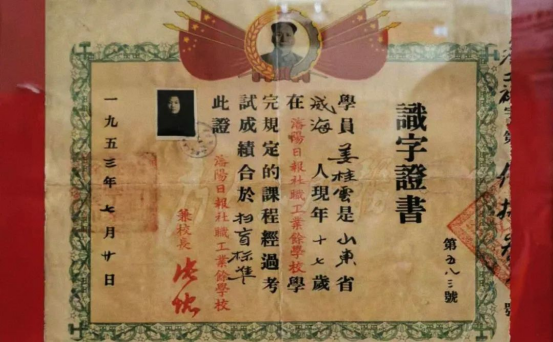 識字證書
第五八三號
學員姜桂雲是山東省
威海人現年十七歲
在洛陽日報社職工業餘學校學
完規定的課程經過考
試成績合於扫盲标准
此證
洛陽日報社職工業餘學校
兼校長
一九五三年七月廿日